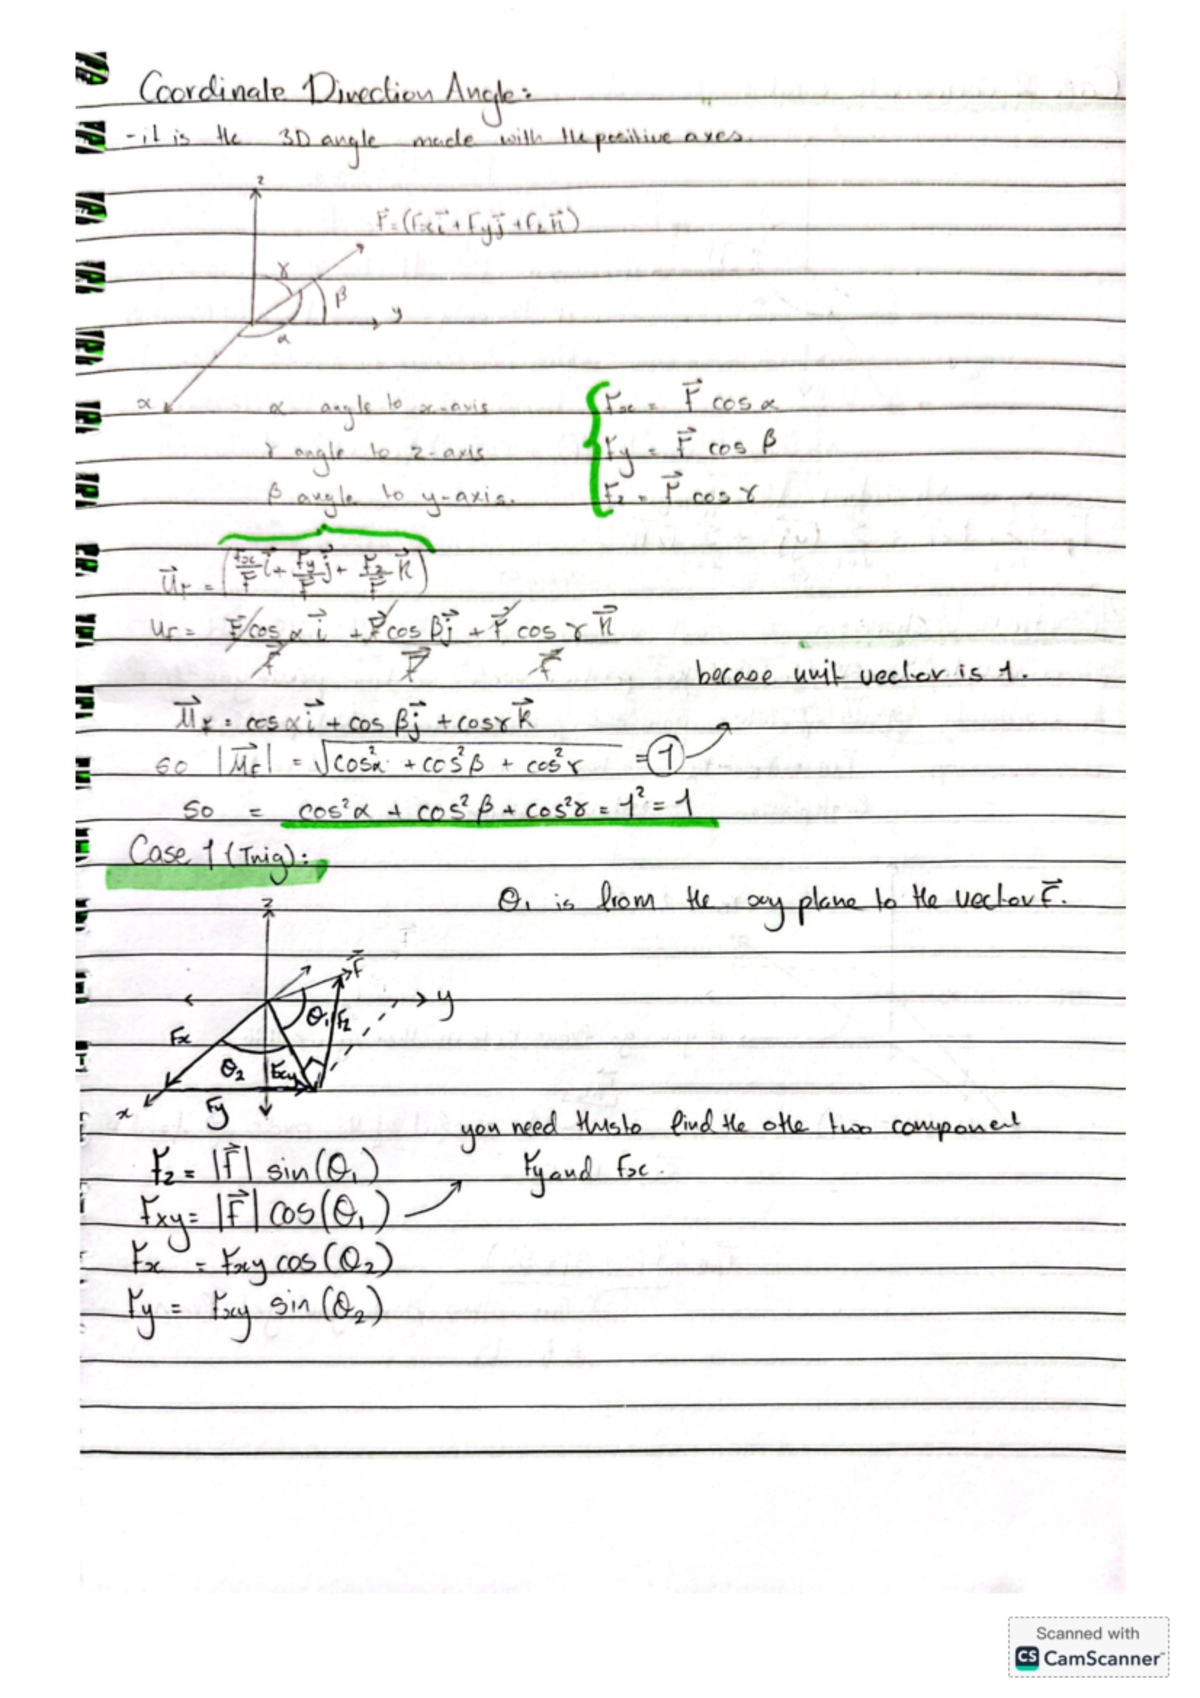 Coordinate Direction Angle:
- it is the 3D angle made with the positive axes.
z
F⃗ = (Fx i⃗ + Fy j⃗ + Fz k⃗)
γ
β
y
α
x
α angle to x-axis
γ angle to z-axis
β angle to y-axis.
Fx = F⃗ cos α
Fy = F⃗ cos β
Fz = F⃗ cos γ
u⃗F = (Fx/F i⃗ + Fy/F j⃗ + Fz/F k⃗)
uF = F⃗ cos α i⃗ / F⃗ + F⃗ cos β j⃗ / F⃗ + F⃗ cos γ k⃗ / F⃗
becaose unit vector is 1.
u⃗F = cos α i⃗ + cos β j⃗ + cos γ k⃗
so |u⃗F| = √cos²α + cos²β + cos²γ = 1
so = cos²α + cos²β + cos²γ = 1² = 1
Case 1 (Trig):
θ₁ is from the xy plane to the vector F⃗.
z
F⃗
y
θ₁
Fz
Fx
θ₂
Fxy
x
Fy
you need this to find the othe two component
Fy and Fx.
Fz = |F⃗| sin(θ₁)
Fxy = |F⃗| cos(θ₁)
Fx = Fxy cos(θ₂)
Fy = Fxy sin(θ₂)
Scanned with
CS CamScanner